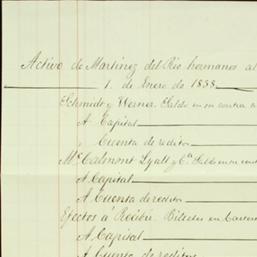 Activo de Martinez del Rio hermanos al
1. de Enero de 1838
Schmidt y Werner. Saldo en su contra
A Capital
" Cuenta de reditos
Mc Calmont Lyall y Ca. Saldo en
A Capital
A Cuenta de reditos
Efectos a Recibir. Billetes en
A Capital
A Cuenta de reditos